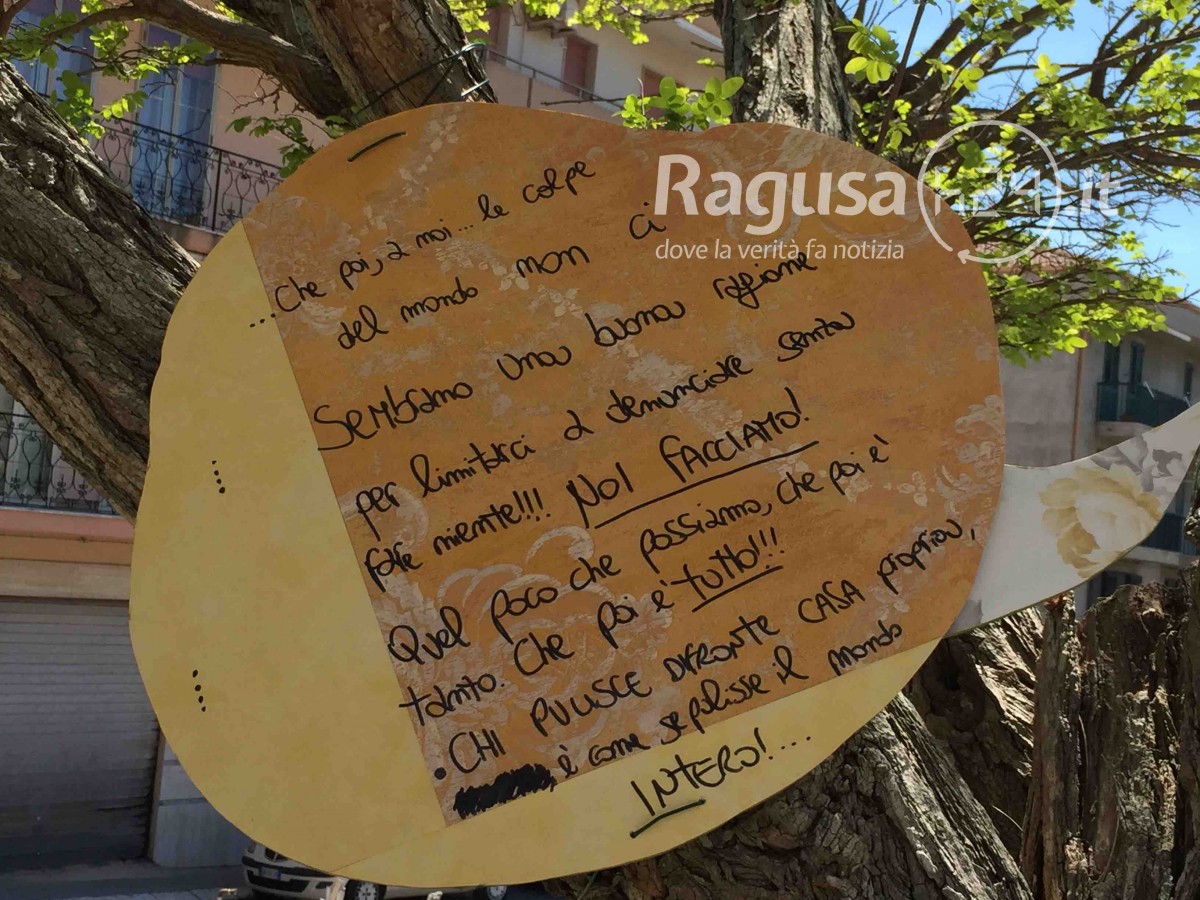 Ragusa h24.it
dove la verità fa notizia
...Che poi, a noi... le colpe
del mondo non ci
Sembrano una buona ragione
per limitarci a denunciare senza
fare niente!!! NOI FACCIAMO!
Quel poco che possiamo, che poi è
tanto. Che poi è TUTTO!!!
• CHI PULISCE DIFRONTE CASA propria,
è come se pulisse il mondo
INTERO!....